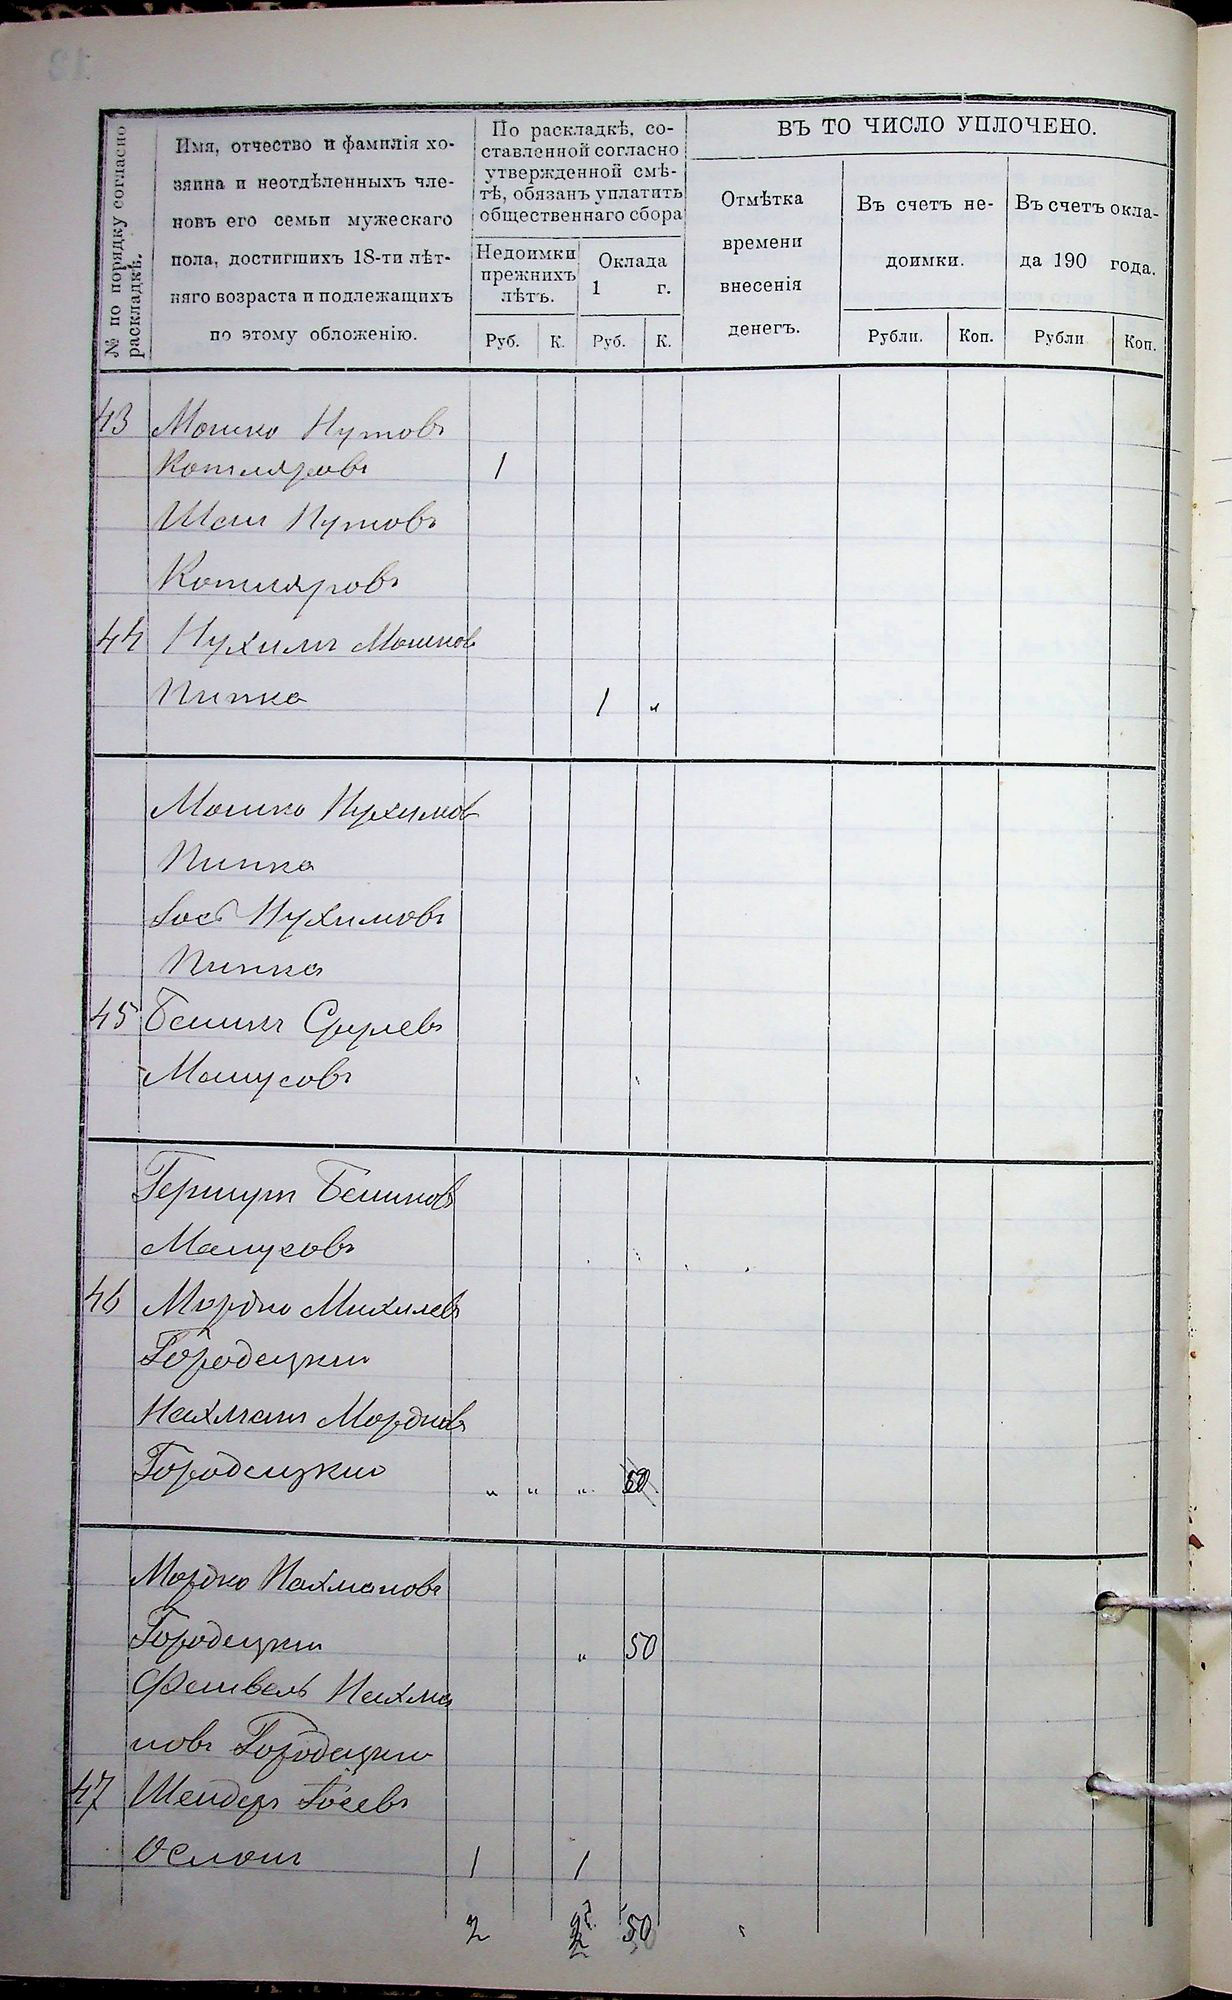 № по порядку согласно раскладкѣ.
Имя, отчество и фамилія хо-
зяина и неотдѣленныхъ чле-
новъ его семьи мужескаго
пола, достигшихъ 18-ти лѣт-
няго возраста и подлежащихъ
по этому обложенію.
По раскладкѣ, со-
ставленной согласно
утвержденной смѣ-
тѣ, обязанъ уплатить
общественнаго сбора
Недоимки
прежнихъ
лѣтъ.
Оклада
1 г.
Руб. К. Руб. К.
ВЪ ТО ЧИСЛО УПЛОЧЕНО.
Отмѣтка
времени
внесенія
денегъ.
Въ счетъ не-
доимки.
Рубли. Коп.
Въ счетъ окла-
да 190 года.
Рубли Коп.
43 Мошко Нутовъ
Котляровъ 1
Шая Нутовъ
Котляровъ
44 Нухимъ Мошковъ
Пипко 1 "
Мошко Нухимовъ
Пипко
Іось Нухимовъ
Пипко
45 Беминъ Срулевъ
Мошусовъ
Гершунъ Беминовъ
Машусовъ
46 Мордко Михилевъ
Городецкій
Нахманъ Мордковъ
Городецкій " " " 50
Мордко Нахмановъ
Городецкій " 50
Файвель Нахма
новъ Городецкій
47 Шендеръ Іосевъ
Ослонъ 1 1
2 2 50